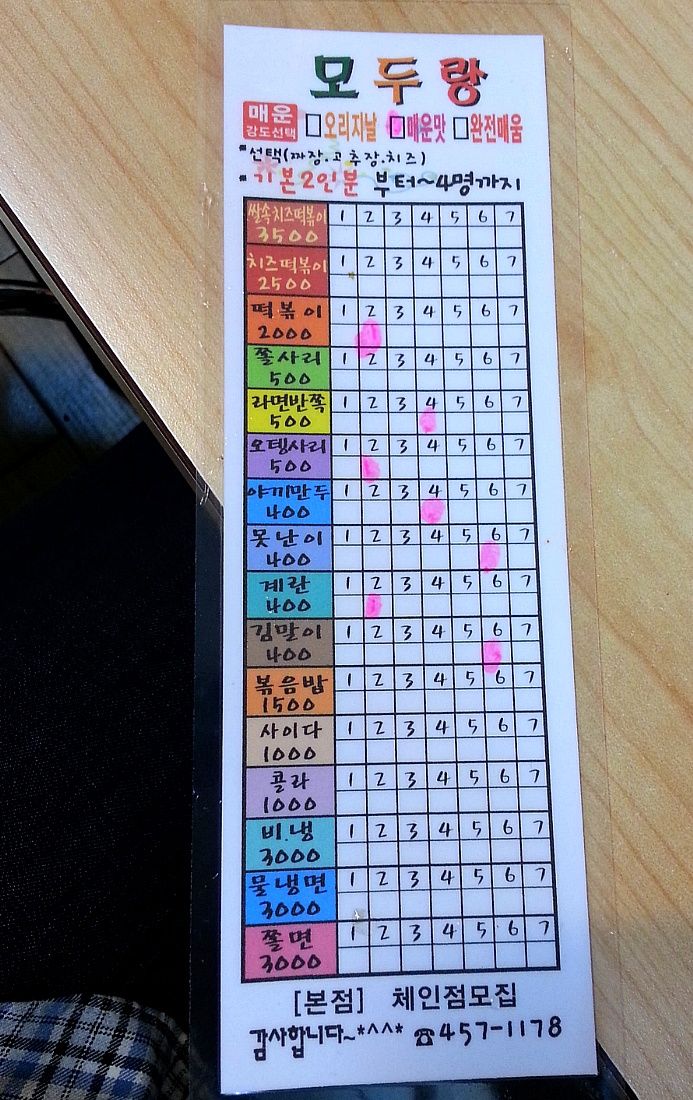 모두랑
매운 강도선택 오리지날 매운맛 완전매움
*선택(짜장.고추장.치즈)
*기본2인분 부터~4명까지
쌀속치즈떡볶이 1 2 3 4 5 6 7
3500
치즈떡볶이 1 2 3 4 5 6 7
2500
떡볶이 1 2 3 4 5 6 7
2000
쫄사리 1 2 3 4 5 6 7
500
라면반쪽 1 2 3 4 5 6 7
500
오뎅사리 1 2 3 4 5 6 7
500
야끼만두 1 2 3 4 5 6 7
400
못난이 1 2 3 4 5 6 7
400
계란 1 2 3 4 5 6 7
400
김말이 1 2 3 4 5 6 7
400
볶음밥 1 2 3 4 5 6 7
1500
사이다 1 2 3 4 5 6 7
1000
콜라 1 2 3 4 5 6 7
1000
비.냉 1 2 3 4 5 6 7
3000
물냉면 1 2 3 4 5 6 7
3000
쫄면 1 2 3 4 5 6 7
3000
[본점] 체인점모집
감사합니다~*^^* ☎457-1178